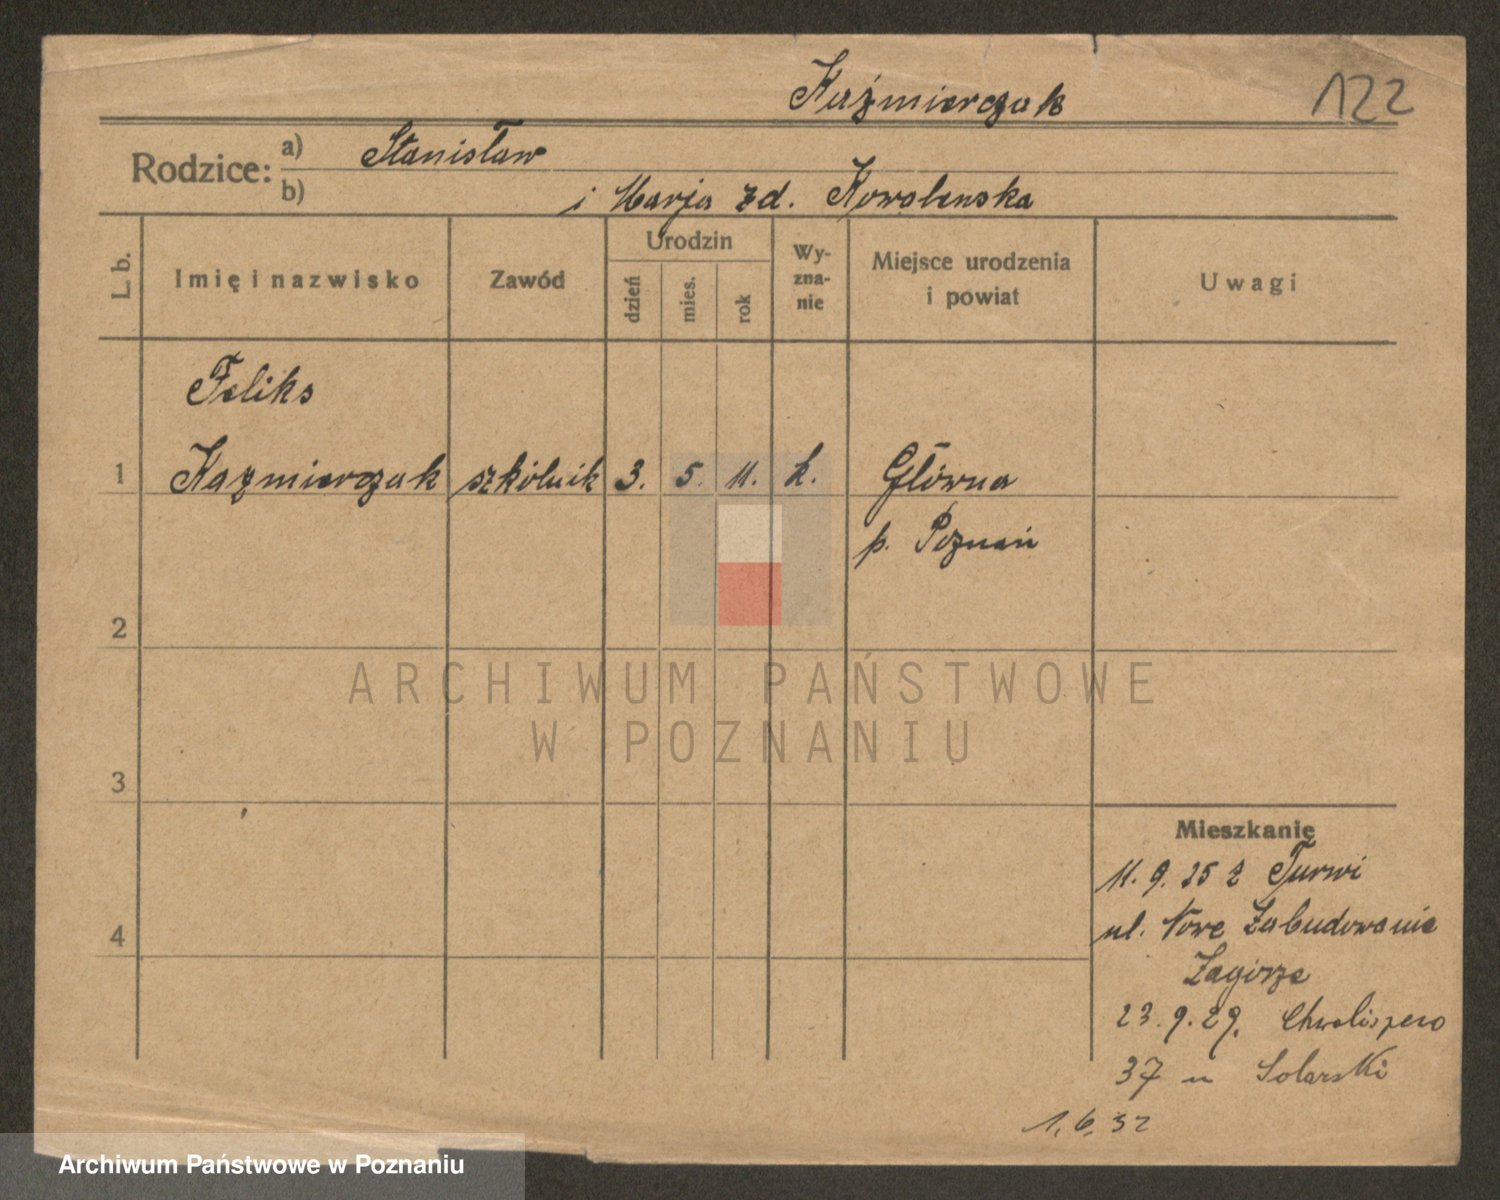 Kaźmierczak
122
Rodzice:
a) Stanisław
b) i Marja zd. Kowalewska
L. b.
Imię i nazwisko
Zawód
Urodzin
dzień
mies.
rok
Wy-
zna-
nie
Miejsce urodzenia
i powiat
Uwagi
Feliks
1 Kaźmierczak szkólnik 3. 5. 11. k. Główna
p. Poznań
2
ARCHIWUM PAŃSTWOWE
W POZNANIU
3
Mieszkanie
11. 9. 25 z Turwi
ul. Nowe Zabudowanie
4
Zagórze
23. 9. 29.
37 u Solarski
1. 6. 32
Archiwum Państwowe w Poznaniu